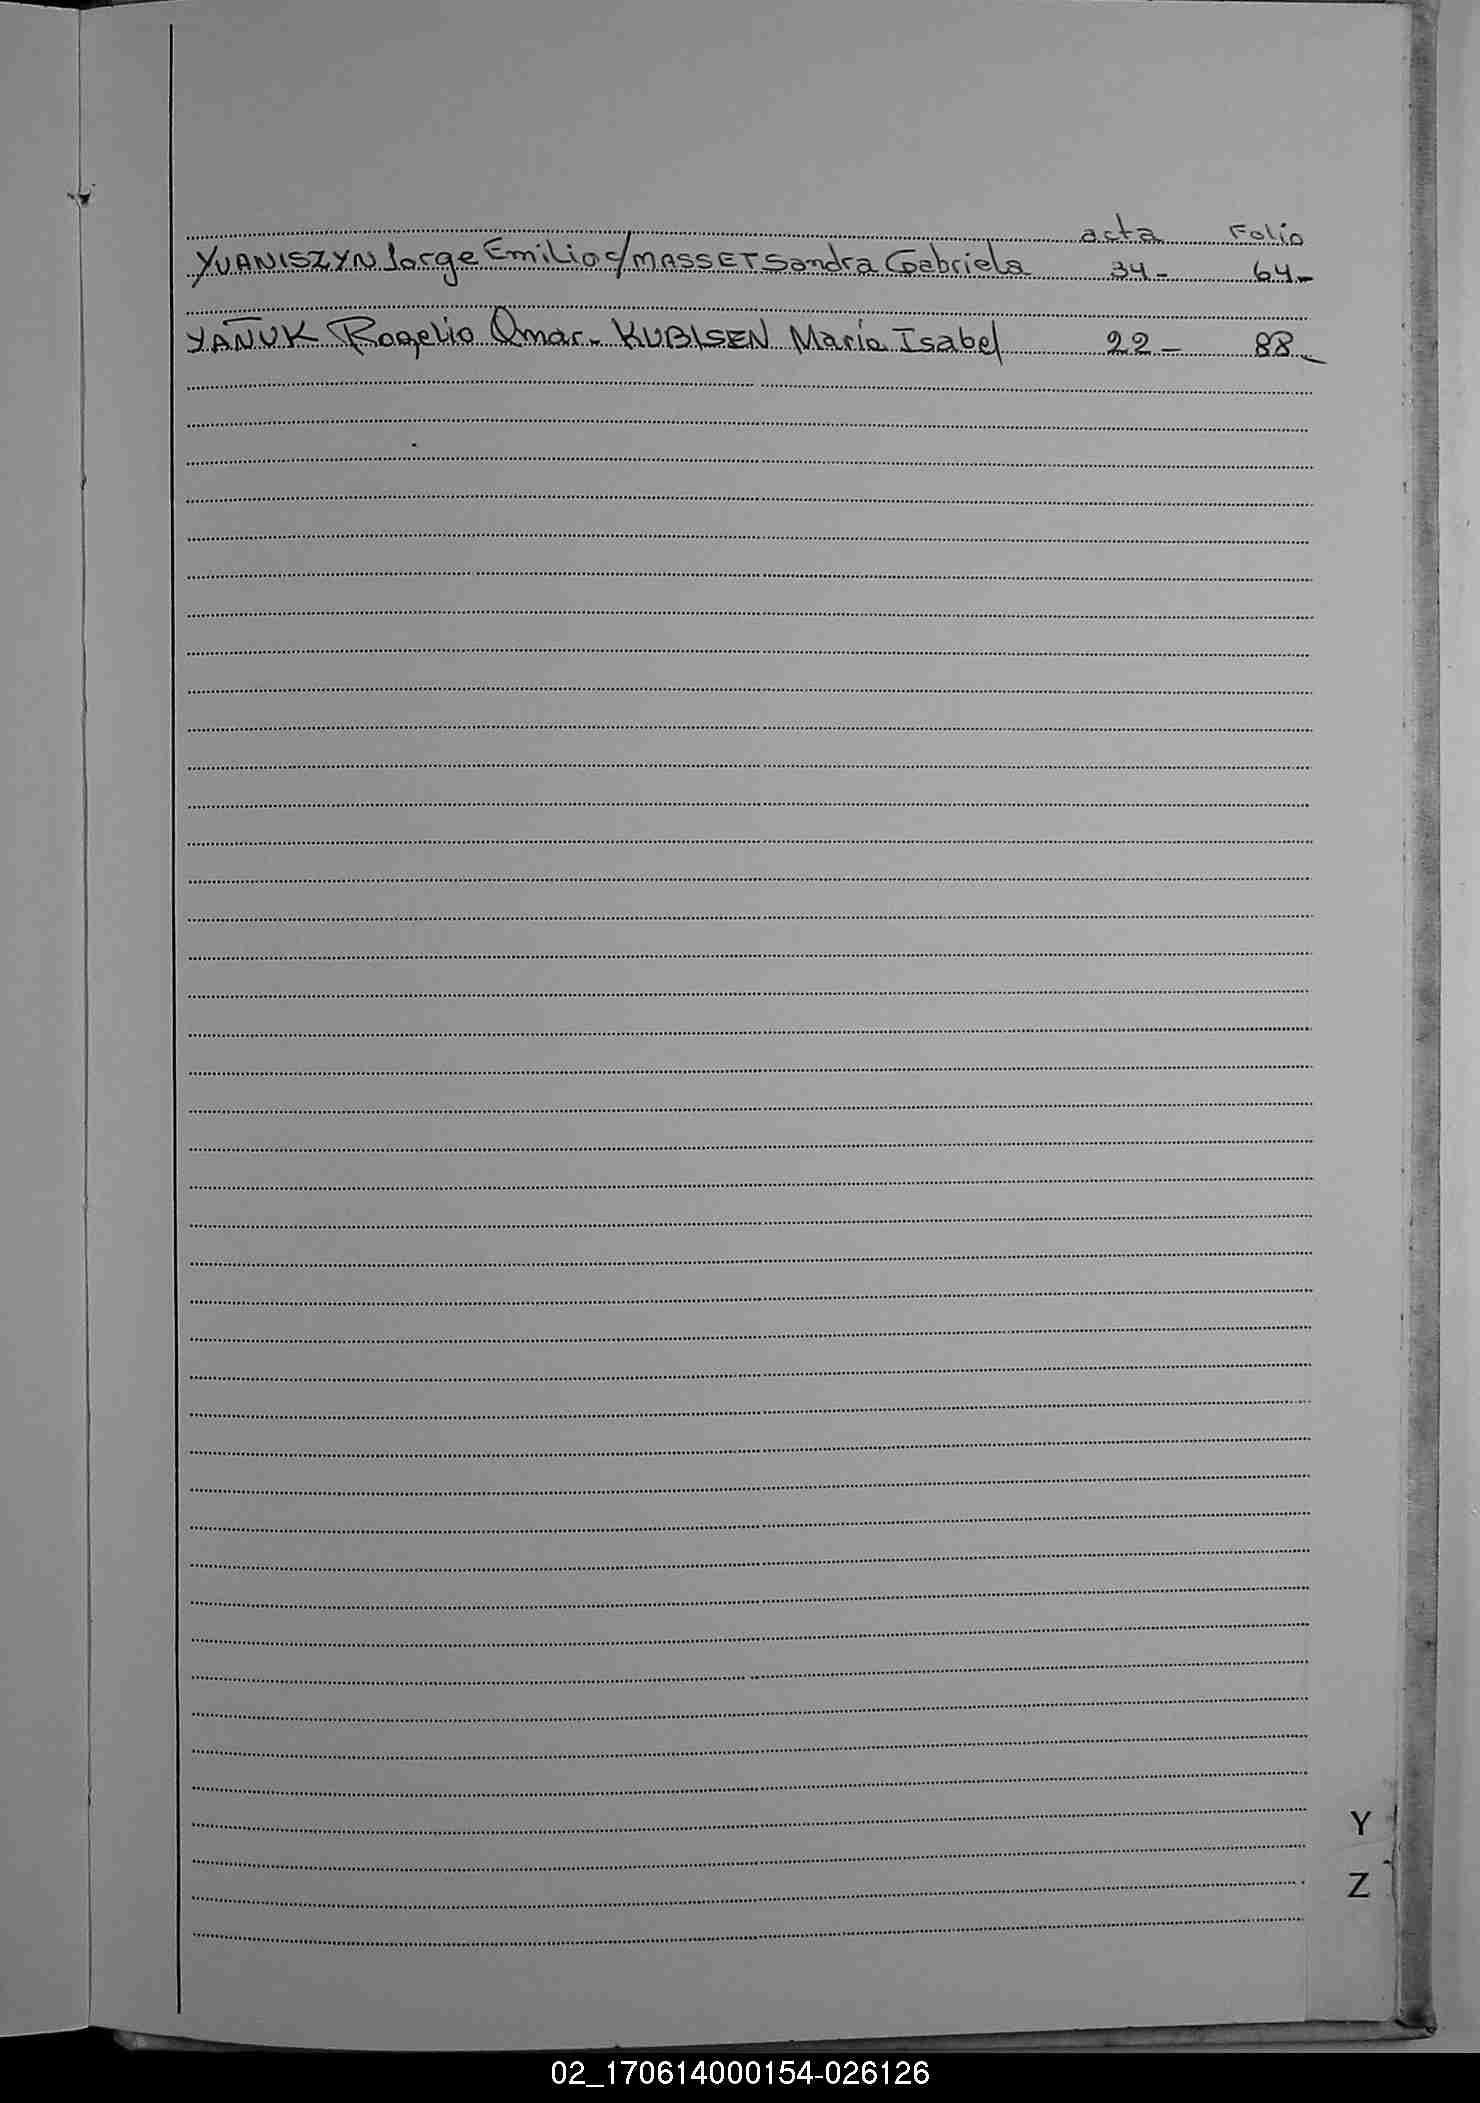 acta Folio
YUANISZYN Jorge Emilio c/MASSET Sandra Gabriela 34- 64-
YAÑUK Rogelio Omar - KUBISEN María Isabel 22- 88-
Y
Z
02_170614000154-026126